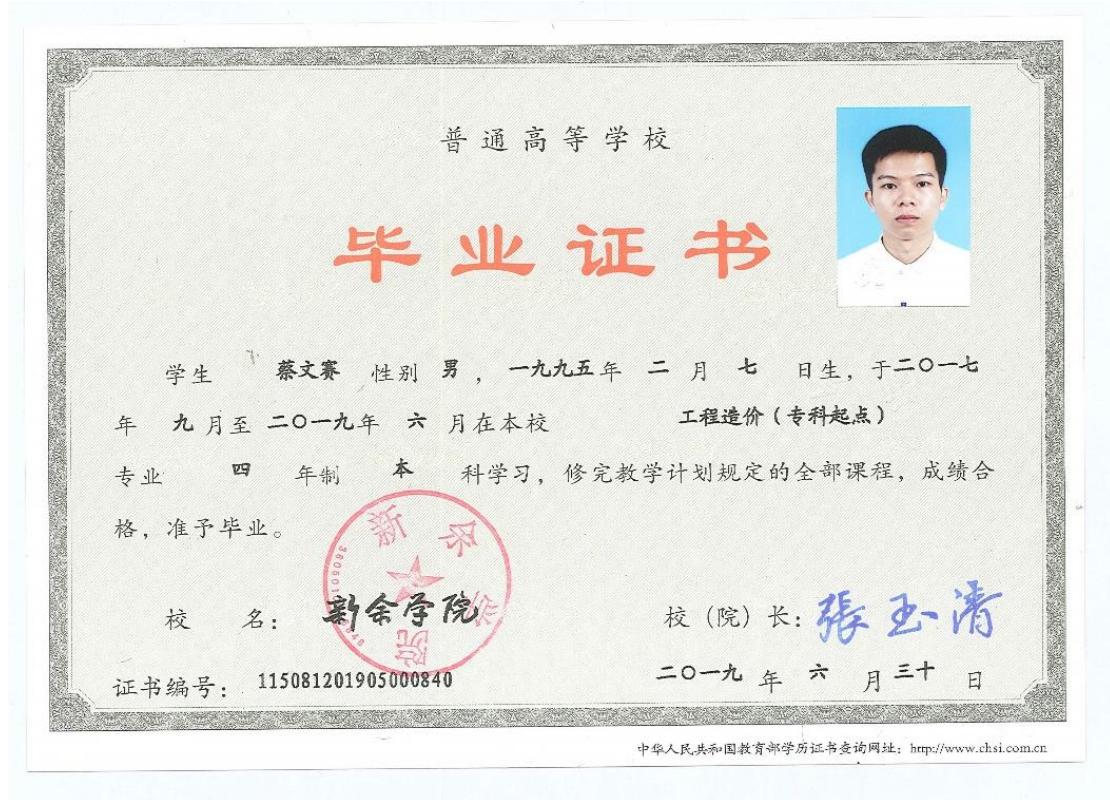 普通高等学校
毕业证书
学生 蔡文赛 性别 男 ，一九九五年 二 月 七 日生，于二〇一七
年 九 月至 二〇一九年 六 月在本校 工程造价（专科起点）
专业 四 年制 本 科学习，修完教学计划规定的全部课程，成绩合
格，准予毕业。
新余学院
校 名： 新余学院
校（院）长：張玉清
证书编号： 115081201905000840
二〇一九 年 六 月 三十 日
中华人民共和国教育部学历证书查询网址：http://www.chsi.com.cn